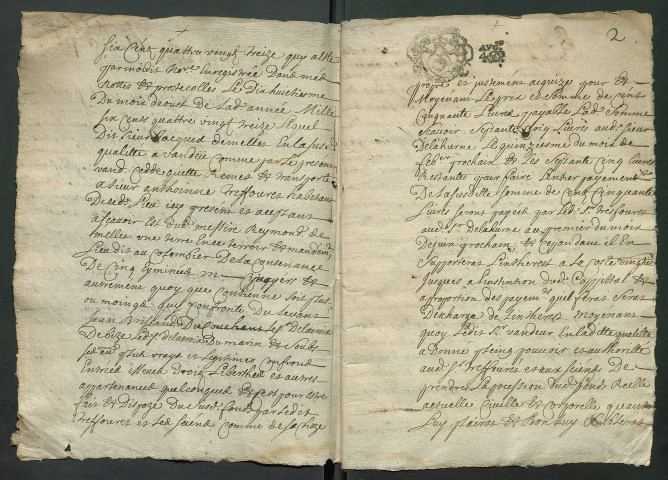 six cent quattre vingt treize que
par moidit no.re Enregistrée dans mes
nottes & protecolles Le dixhuictiesme
Du mois daoust de Lad. année Mille
six cents quattre vingt treize Lequel
Dit sieur Jacques demelles En La susd.
qualitté a vandeu comme par Le present
vand cedde quitte Remet & transporte
a sieur anthoinne Treffouret habitant
De ced. Lieu icy present et aceptant
ascavoir Est dud. messire Reymond de
melles une terre En ce terroir &
Lieu dit au Colombier De La contenance
De Cinq eyminees &
autrement quoy que contienne soit plus
ou moings quy confronte Du Levant
Jean Du Couchant Les
De bize Du marin &
sed. au plus vrays et Legitimes confronts
Entrées Droitz Libertes et autres
appartenances quelconques & est pour estre
fait & Dispozé Du susd. fonds par Ledit
Treffouret et Les siens comme de sa choze
2
AVG.on
propre et justement acquize pour &
Moyenant Le prix et somme de cent
Cinquante Livres payable Lad. somme
scavoir septante Cinq Livres aud. sieur
Delahurne Le quinziesme du mois de
prochain & Les septante cinq Livres
Restantes pour faire L'entier payement
De La susditte somme de Cent Cinquante
Livres seront payees par Led. s.r Treffouret
aud. s.r Delahurne au premier du mois
De juin prochain & cependant il En
supportera L'intherest a La cotte vingtie.
jusques a L'institution dud. Cappittal &
a proportion des payem.ts quil fera sera
Dechargé de L'intherest moyenant
quoy Ledit s.r vandeur En Laditte qualitté
a Donné plein pouvoir et authoritté
aud. s.r Treffouret et aux siens De
prendre La possession dud. fonds Reelle
actuelle Civille & corporelle quand
Luy plaira & bon Luy semblera